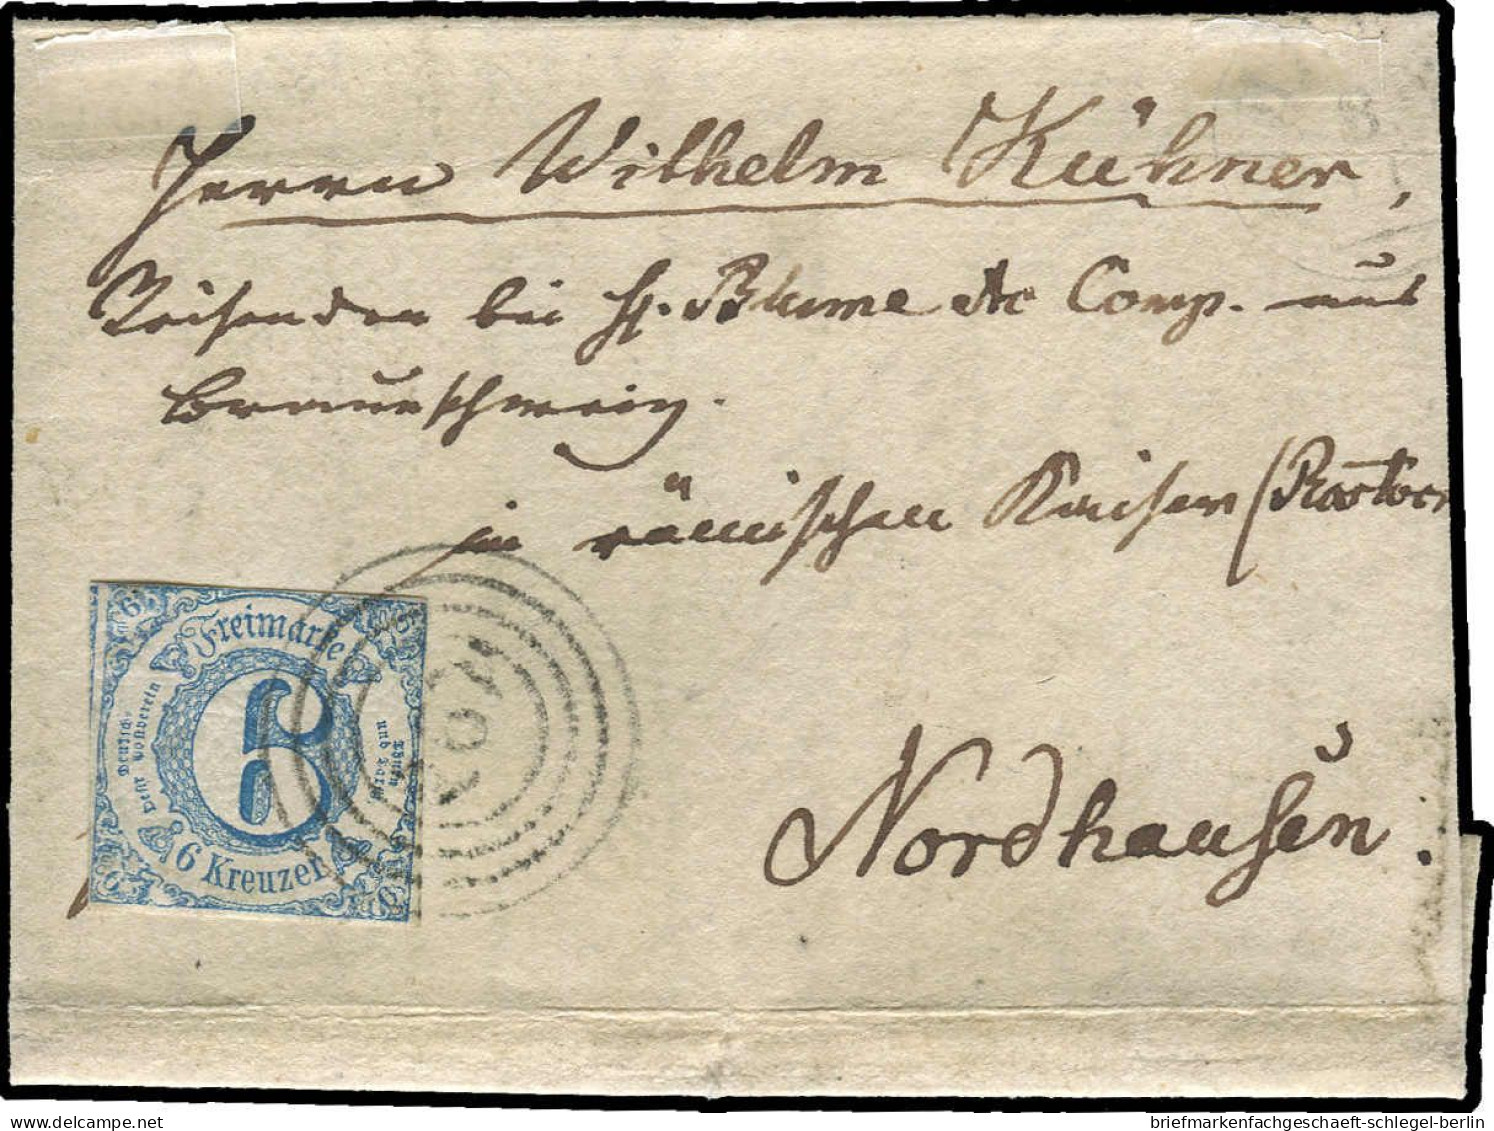 Herrn Wilhelm Kühner,
Reisender bei H. Blume & Comp. aus
Braunschweig.
im römischen Kaiser (
Nordhausen.
Freimarke
6
6 Kreuzer
Deutsch-
Oestr. Postverein
Thurn
und Taxis
6
6
6
6
briefmarkenfachgeschaeft-schlegel-berlin